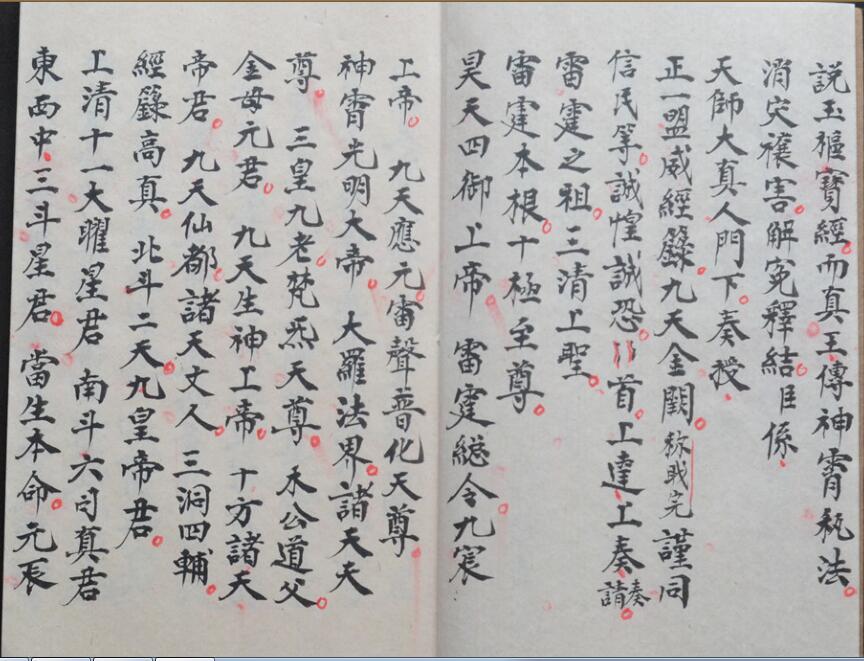 說玉樞寶經而真王傳神霄秘法
消灾禳害解冤釋結臣係
天師大真人門下奏授
正一盟威經籙九天金闕称戝完謹同
信民等誠惶誠恐〻〻首上達上奏奏請
雷霆之祖三清上聖
雷霆本根十極至尊
昊天四御上帝 雷霆總令九宸
上帝 九天應元雷聲普化天尊
神霄光明大帝 大羅法界諸天天
尊 三皇九老梵炁天尊 木公道父
金母元君 九天生神上帝 十方諸天
帝君 九天仙都諸天丈人 三洞四輔
經籙高真 北斗二天九皇帝君
上清十一大曜星君 南斗六司真君
東西中三斗星君 當生本命元辰